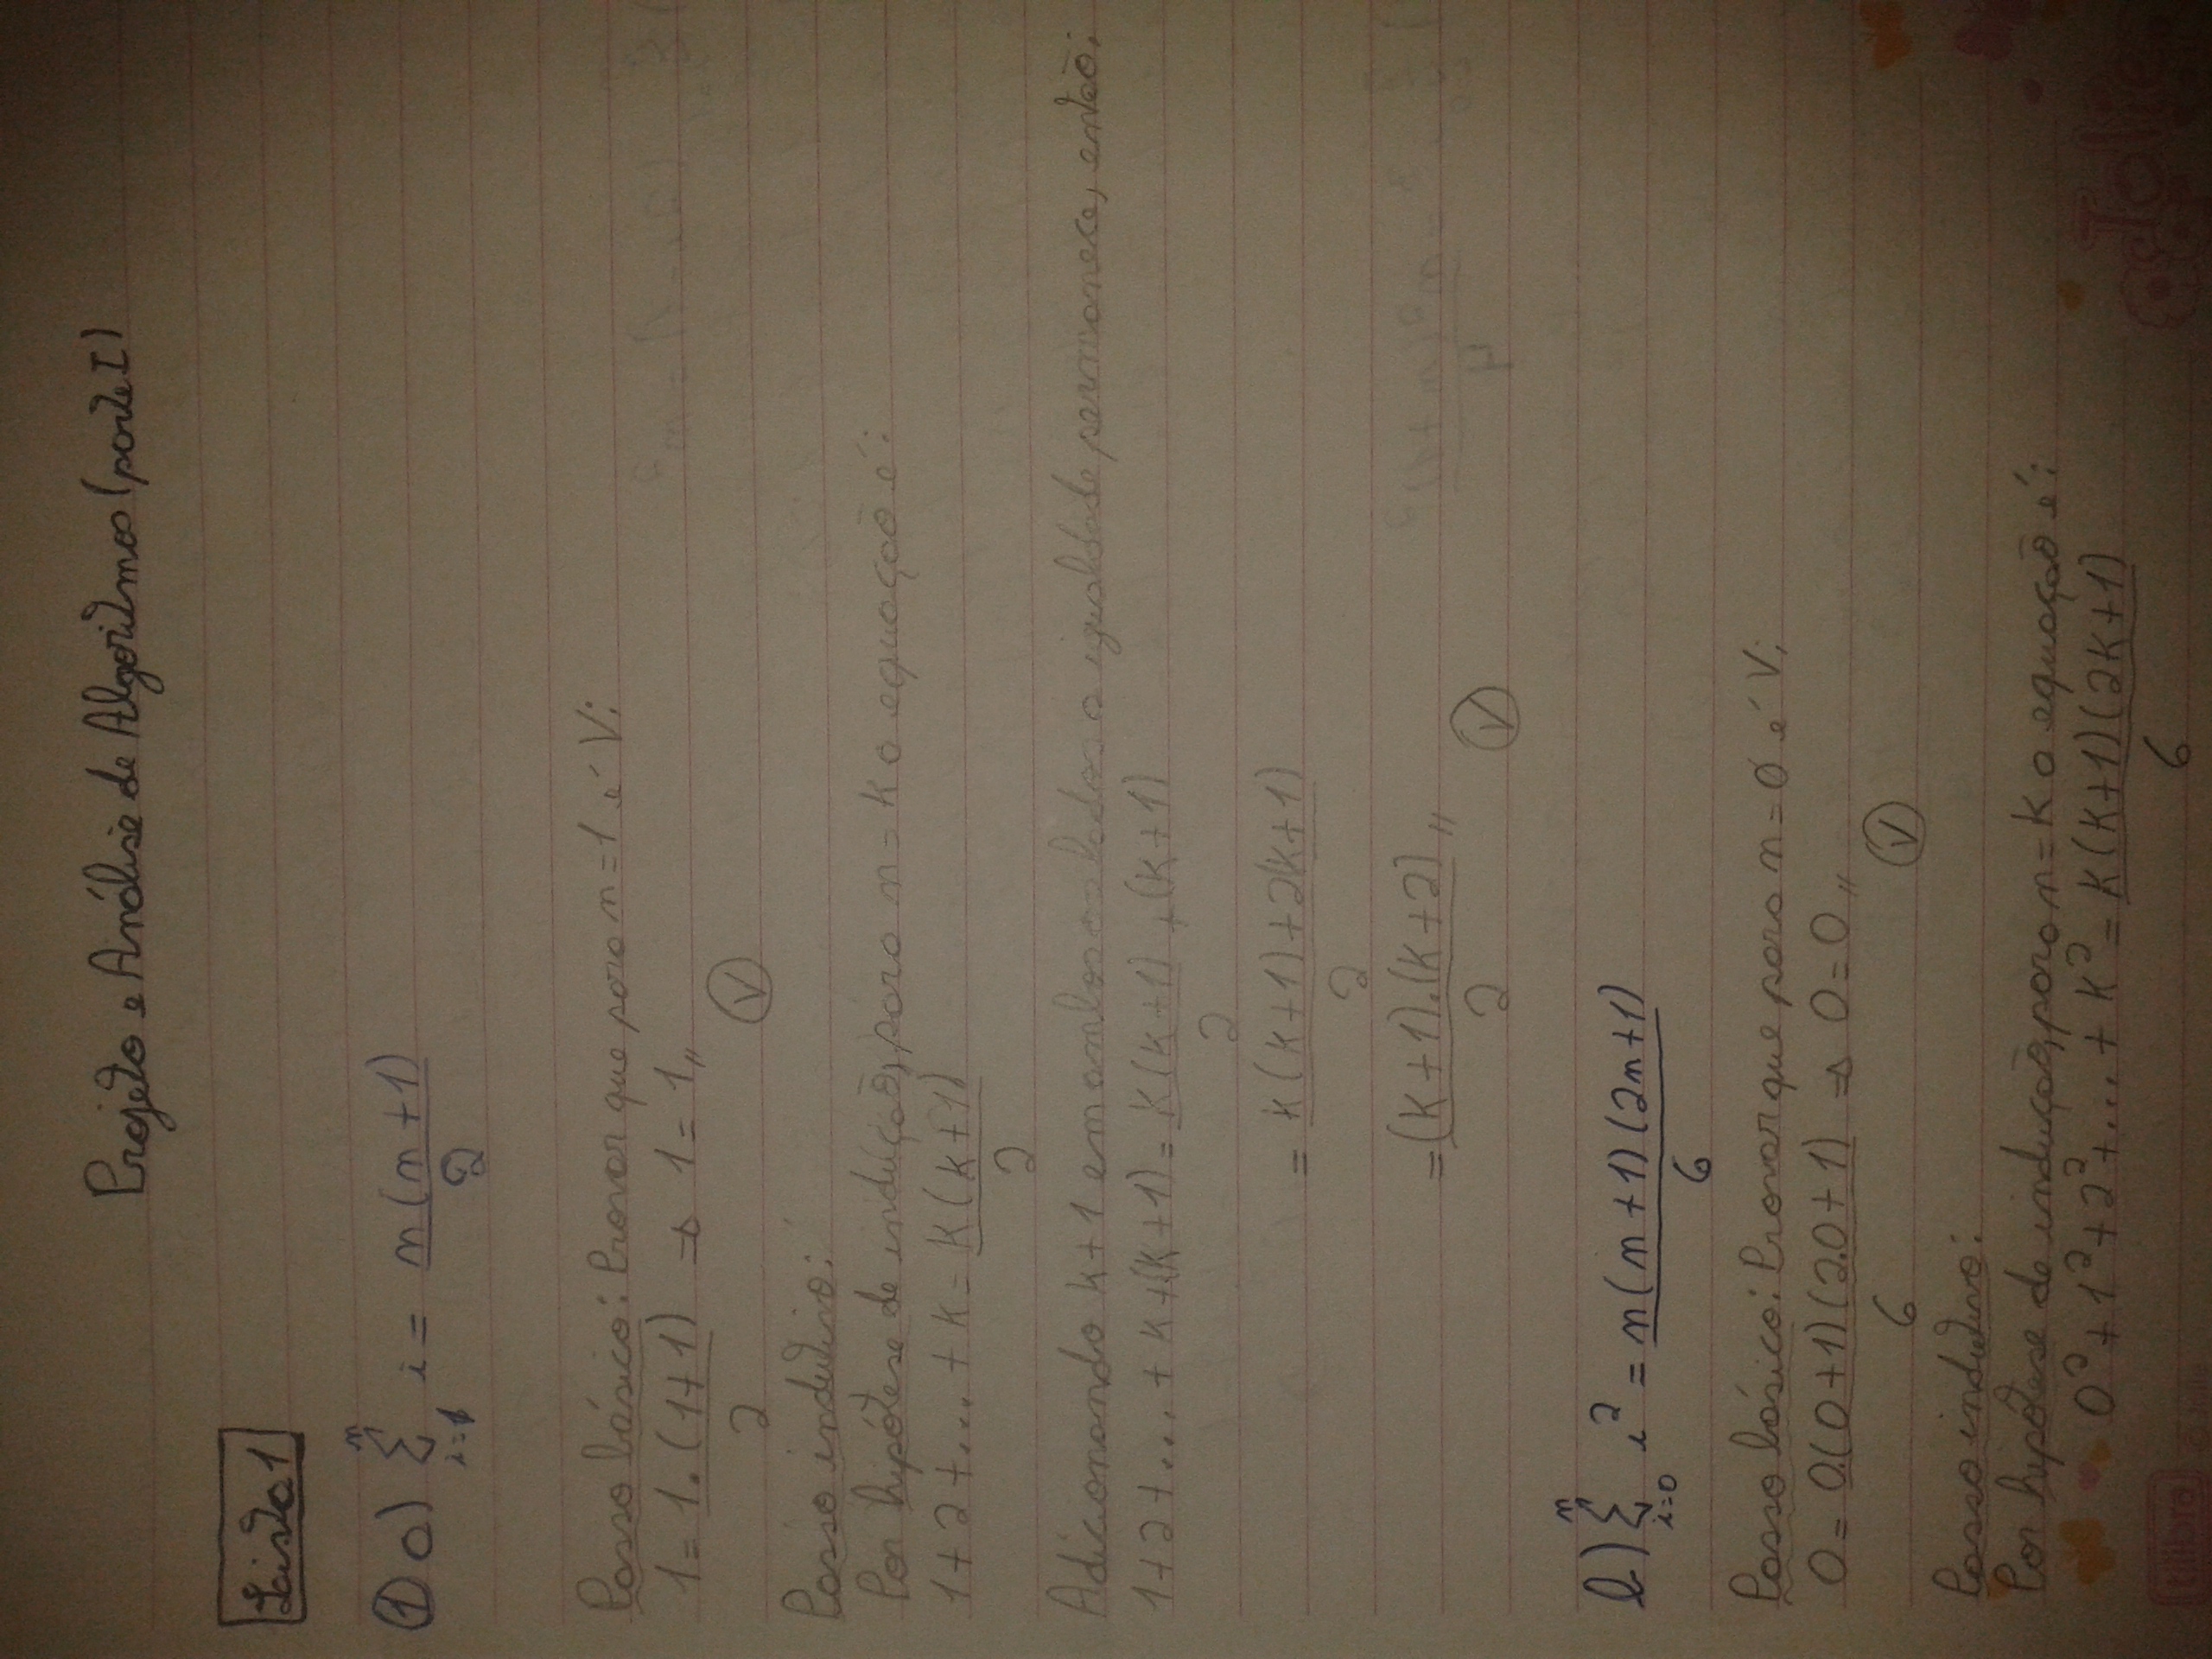 Projeto e Análise de Algoritmos (parte I)
Lista 1
① a) n Σ i=1 i = n(n+1)/2
Passo básico: Provar que para n=1 é V:
1 = 1.(1+1)/2 ⇒ 1 = 1,, Ⓥ
Passo indutivo:
Por hipótese de indução, para n=k a equação é:
1+2+...+k = k(k+1)/2
Adicionando k+1 em ambos os lados a igualdade permanece, então:
1+2+...+k+(k+1) = k(k+1)/2 + (k+1)
= k(k+1)+2(k+1)/2
= (k+1).(k+2)/2 ,, Ⓥ
b) n Σ i=0 i² = n(n+1)(2n+1)/6
Passo básico: Provar que para n=0 é V:
0 = 0.(0+1)(2.0+1)/6 ⇒ 0=0,, Ⓥ
Passo indutivo:
Por hipótese de indução, para n=k a equação é:
0²+1²+2²+...+k² = k(k+1)(2k+1)/6
tilibra © Jolie
Jolie